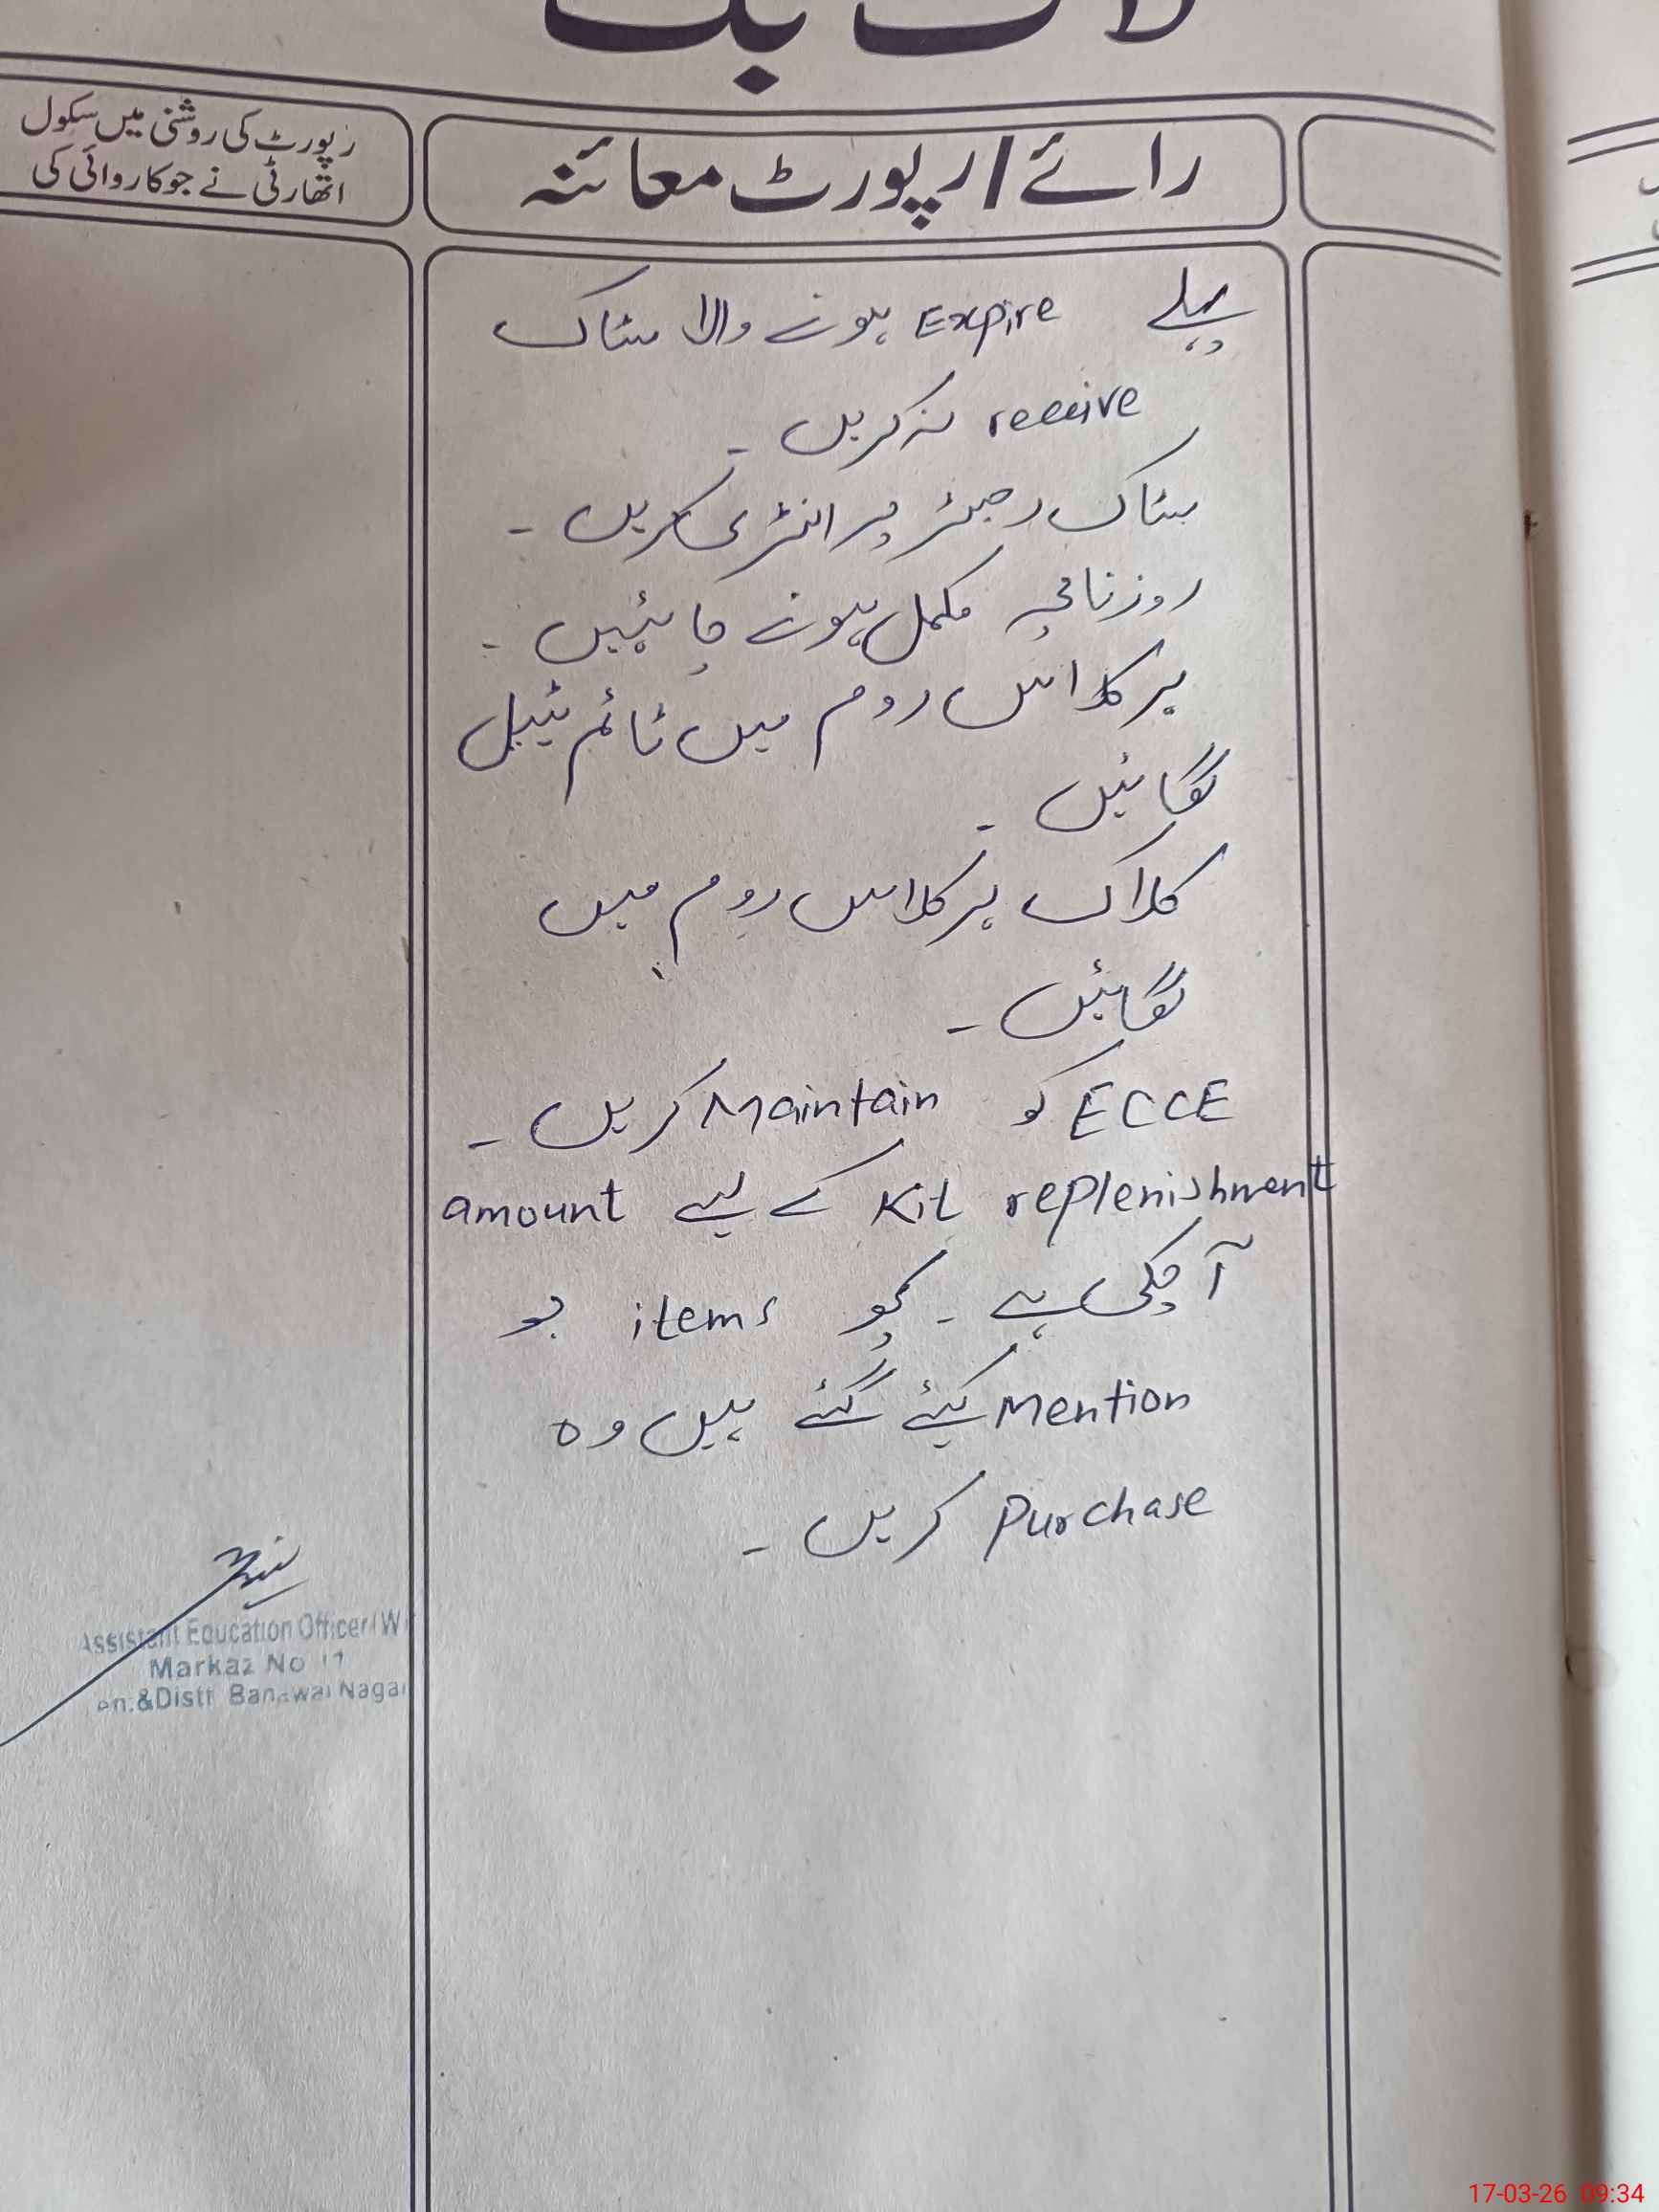 لاگ بک
رائے / رپورٹ معائنہ
رپورٹ کی روشنی میں سکول
اتھارٹی نے جو کاروائی کی
پہلے Expire ہونے والا سٹاک
receive نہ کریں ۔
سٹاک رجسٹر پر انٹری کریں ۔
روزنامچہ مکمل ہونے چاہئیں ۔
ہر کلاس روم میں ٹائم ٹیبل
لگائیں ۔
کلاک ہر کلاس روم میں
لگائیں ۔
ECCE کو Maintain کریں ۔
Kit replenishment کے لیے amount
آ چکی ہے ۔ جو items
Mention کیئے گئے ہیں وہ
Purchase کریں ۔
Assistant Education Officer (W
Markaz No 11
en.&Distt Nagar
17-03-26 09:34